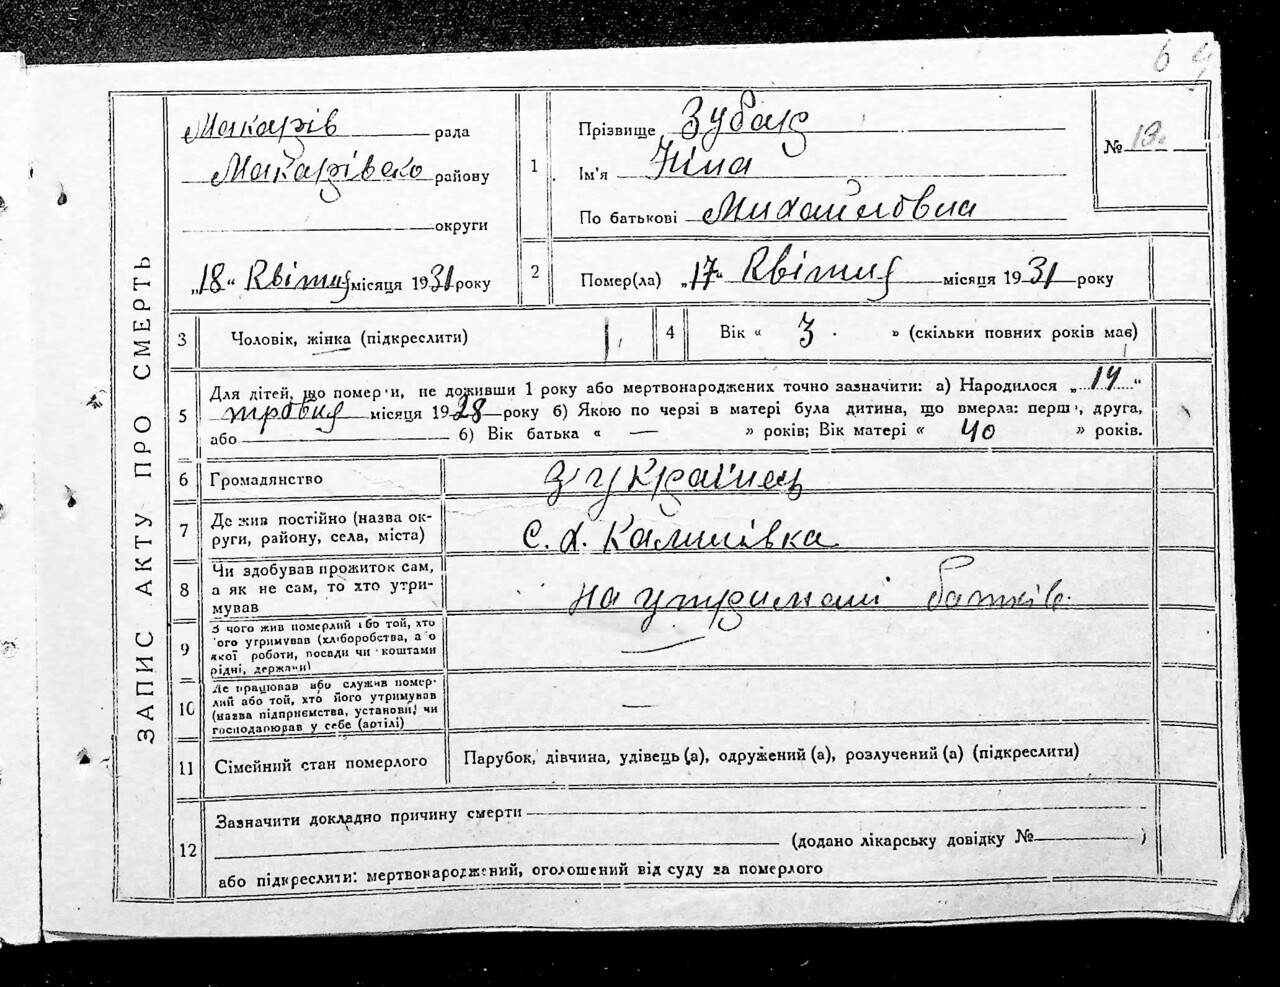 6 9
ЗАПИС АКТУ ПРО СМЕРТЬ
Макарів рада
Макарівсько району
округи
„18“ Квітня місяця 1931 року
1
Прізвище Зубар
Ім'я Ніна
По батькові Михайловна
№ 19.
2
Помер(ла) „17“ Квітня місяця 1931 року
3
Чоловік, жінка (підкреслити)
4
Вік « 3 » (скільки повних років має)
5
Для дітей, що помер и, не доживши 1 року або мертвонароджених точно зазначити: а) Народилося „14“
травня місяця 1928 року б) Якою по черзі в матері була дитина, що вмерла: перш , друга,
або б) Вік батька « — » років; Вік матері « 40 » років.
6
Громадянство
з українец
7
Де жив постійно (назва ок-
руги, району, села, міста)
с. х. Калинівка
8
Чи здобував прожиток сам,
а як не сам, то хто утри-
мував
на утримані батьків.
9
З чого жив померлий або той, хто
його утримував (хліборобства, а о
якої роботи, посади чи коштами
рідні, держави)
—
10
Де працював або служив помер-
лий або той, хто його утримував
(назва підприємства, установи) чи
господарював у себе (артілі)
—
11
Сімейний стан померлого
Парубок, дівчина, удівець (а), одружений (а), розлучений (а) (підкреслити)
12
Зазначити докладно причину смерти
(додано лікарську довідку № )
або підкреслити: мертвонароджений, оголошений від суду за померлого